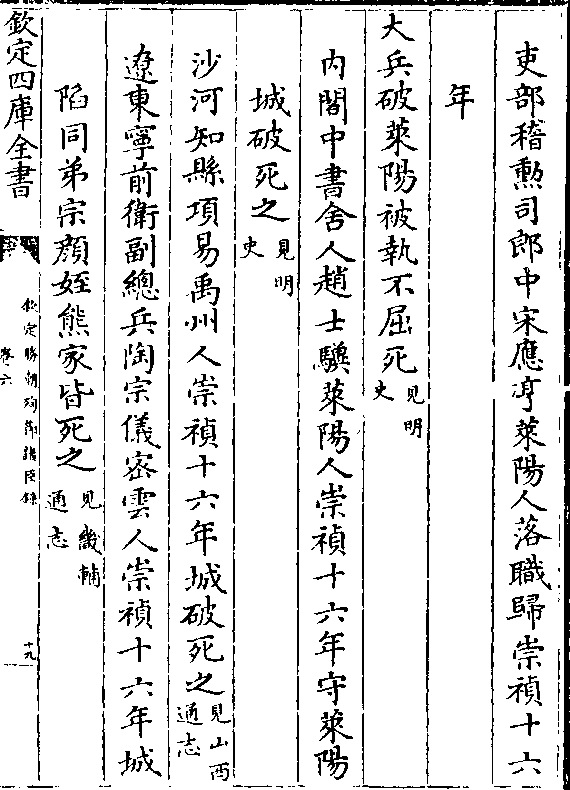 吏部稽勲司郎中宋應亨萊陽人落職歸崇禎十六
年
大兵破萊陽被執不屈死見明史
内閣中書舍人趙士驥萊陽人崇禎十六年守萊陽
城破死之見明史
沙河知縣項易禹州人崇禎十六年城破死之見山西通志
遼東寧前衛副總兵陶宗儀密雲人崇禎十六年城
陷同弟宗顔姪熊家皆死之見畿輔通志
欽定四庫全書
欽定勝朝殉節諸臣録
卷六
十九